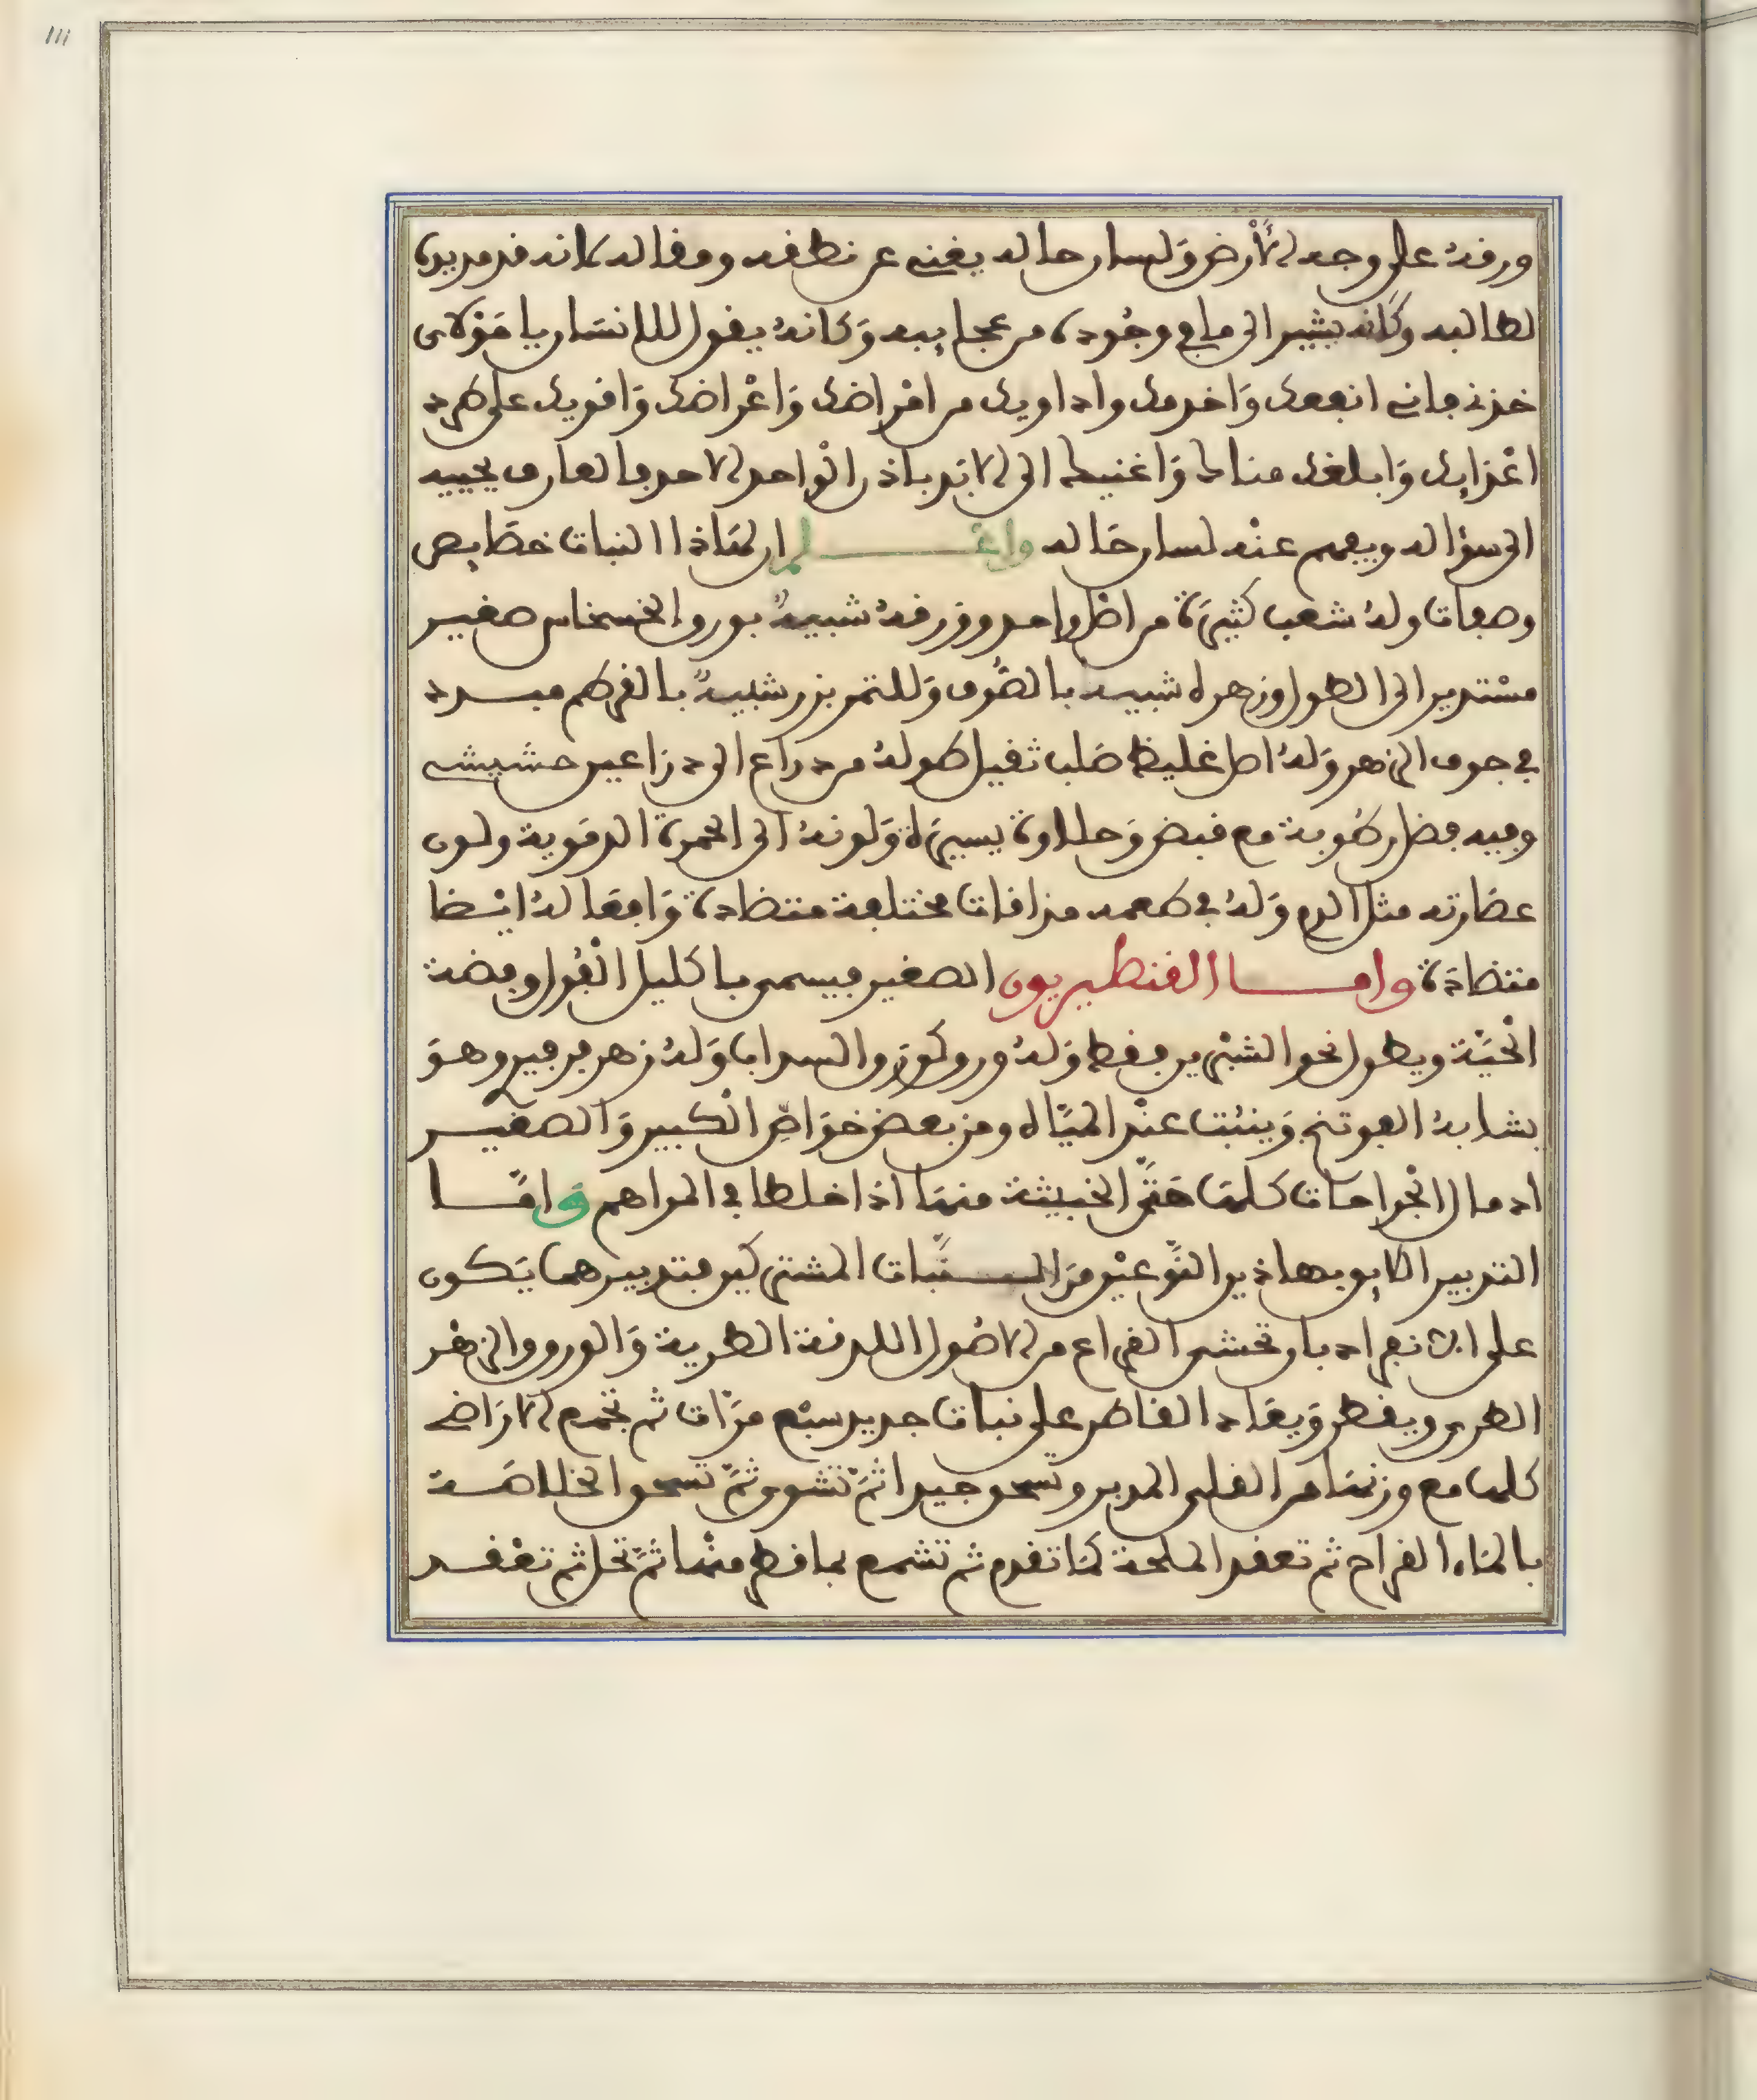 ورقه على وجه الأرض ولسان حاله يغني عن نطقه ومقاله كانه قد مد يده
لطالبه وكانه يشير الى ما في وجوده من عجايبه وكانه يقول للانسان يا مولاى
خذني فاني انفعك واخدمك واداويك من امراضك واعراضك واقويك على طرد
اعدايك وابلغك مناك واغنيك الى الابد باذن الواحد الاحد فالعارف يجيبه
الى سؤاله ويفهم عنه لسان حاله واعلم ان لهاذا النبات خصايص
وصفات وله شعب كثيرة من اصل واحد وورقه شبيه بورق الخشخاش صغير
مستدير الى الطول وزهره شبيه بالصوف وللثمر بزر شبيه بالقرطم مبدد
في جوف الزهر وله اصل غليظ صلب ثقيل طوله من ذراع الى ذراعين حشيشي
وفيه فضل رطوبة مع قبض وحلاوة يسيرة ولونه الى الحمرة الدموية ولون
عصارته مثل الدم وله في طعمه مذاقات مختلفة متضادة وافعاله ايضا
متضادة واما القنطريون الصغير فيسمى باكليل القول وفضة
الحية ويطول نحو الشبرين فقط وله ورق كورق السداب وله زهر فرفيري وهو
يشابه الفوتنج وينبت عند المياه ومن بعض خواص الكبير والصغير
ادمال الجراحات كلها حتى الخبيثة منها اذا خلطا في المراهم واما
التدبير الايق بهاذين النوعين من النبات المشتركين فتدبيرهما يكون
على الانفراد بان تحشى القراع من الاصول اللدنة الطرية والورق والزهر
الطري ويقطر ويعاد القاطر على نبات جديد سبع مرات ثم تجمع الاراضي
كلها مع وزنها من القلي المدبر وتسحق جيدا ثم تشوى ثم تسحق الخلاصة
بالماء القراح ثم تعقد الملحة كما تقدم ثم تشمع بما قطر منها ثم تحل ثم تعقد